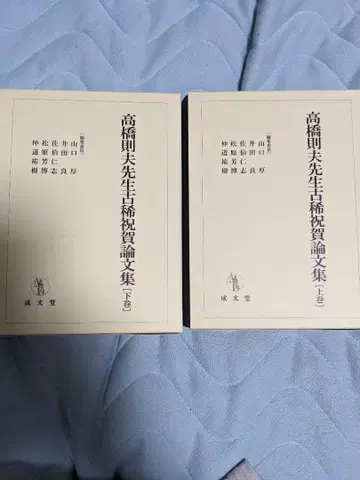 高橋則夫先生古稀祝賀論文集[下巻]
[編集委員]
山口厚
井田良
佐伯仁志
松原芳博
仲道祐樹
成文堂
高橋則夫先生古稀祝賀論文集[上巻]
[編集委員]
山口厚
井田良
佐伯仁志
松原芳博
仲道祐樹
成文堂